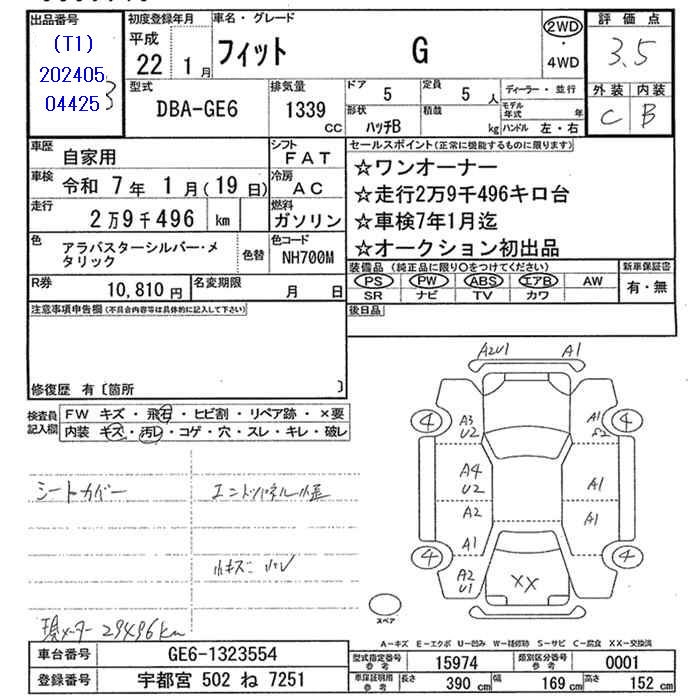 出品番号
(T1)
202405
04425 3
初度登録年月
平成
22 1月
車名・グレード
フィット G
2WD
・
4WD
評価点
3.5
外装 内装
C B
型式
DBA-GE6
排気量
1339
CC
ドア
5
定員
5 人
形状
ハッチB
積載
kg
ディーラー・並行
モデル
年式 年
ハンドル 左・右
車歴
自家用
シフト
FAT
車検
令和 7年 1月(19日)
冷房
AC
走行
2万9千496 km
燃料
ガソリン
色
アラバスターシルバー・メ
タリック
色替
色コード
NH700M
R券
10,810円
名変期限
月 日
セールスポイント(正常に機能するものに限ります)
☆ワンオーナー
☆走行2万9千496キロ台
☆車検7年1月迄
☆オークション初出品
装備品(純正品に限り○をつけてください)
PS PW ABS エアB AW
SR ナビ TV カワ
新車保証書
有・無
後日品
注意事項申告欄(不具合内容等は具体的に記入して下さい)
修復歴 有〔箇所 〕
検査員
記入欄
FW キズ・飛石・ヒビ割・リペア跡・×要
内装 キズ・汚レ・コゲ・穴・スレ・キレ・破レ
シートカバー
現メーター 29496km
A2U1 A1
4 4
A3
U2
A1
S2
A4
U2
A1
A2
A1
A1
4 4
A2
U1
XX
スペア
A-キズ E-エクボ U-凹み W-補修跡 S-サビ C-腐食 XX-交換済
車台番号
GE6-1323554
登録番号
宇都宮 502 ね 7251
型式指定番号
参考
15974
類別区分番号
参考
0001
車保証明用
参考
長さ 390 cm
幅 169 cm
高さ 152 cm